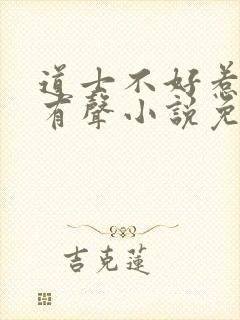 道士不好惹
有聲小說免
吉克蓮